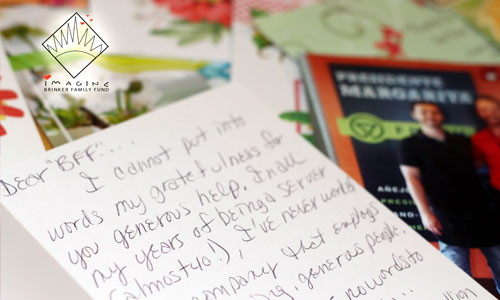 IMAGINE
BRINKER FAMILY FUND
Dear "BFF"....
I cannot put into
words my gratefulness for
you generous help. In all
my years of being a server
(almost 40!), I've never works
company that employs
, generous people.
no words to
PRESIDENTE
MARGARITA
AÑEJO
PRESI